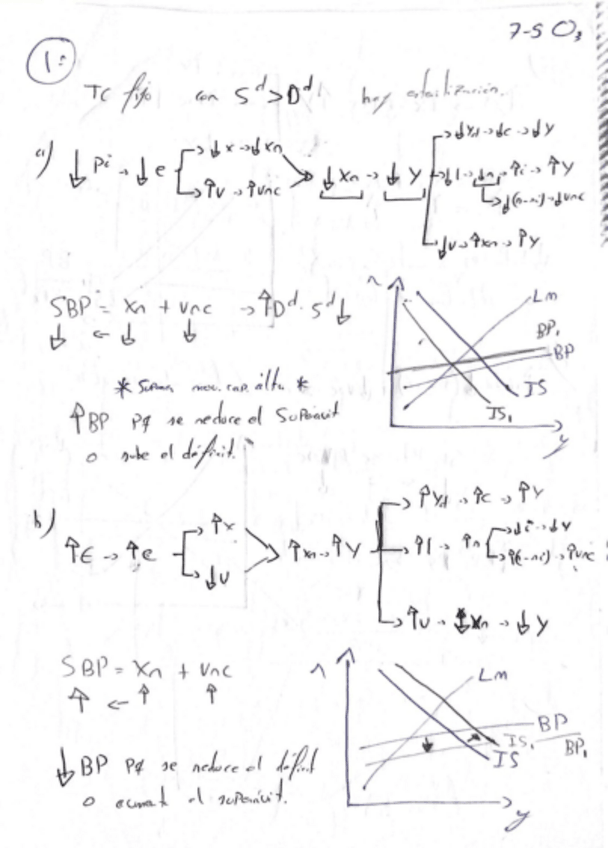 7-5 O₃
1:
TC fijo con S^d > D^d hay esterilización.
a) ↓Pi → ↓e → ↓x → ↓xn
→ ↑v → ↑vnc
↓Xn → ↓Y
→ ↓Yd → ↓c → ↓Y
→ ↓l → ↓n → ↑i → ↑Y
→ ↓(n-ni) → ↓vnc
→ ↓v → ↑xn → ↑Y
SBP = Xn + vnc → ↑D^d · S^d↓
↓ ← ↓ ↓
* Supon. mov. cap. alta *
↑BP Pq se reduce el Superávit
o sube el déficit.
r
Lm
BP₁
BP
IS
IS₁
y
b) ↑E → ↑e → ↑x
→ ↓v
↑xn → ↑Y
→ ↑Yd → ↑c → ↑Y
→ ↑l → ↑n → ↓i → ↓Y
→ ↑(n-ni) → ↑vnc
→ ↑v → ↓Xn → ↓Y
SBP = Xn + vnc
↑ ← ↑ ↑
↓BP Pq se reduce el déficit
o aument el superávit.
r
Lm
BP
IS₁
BP₁
IS
y